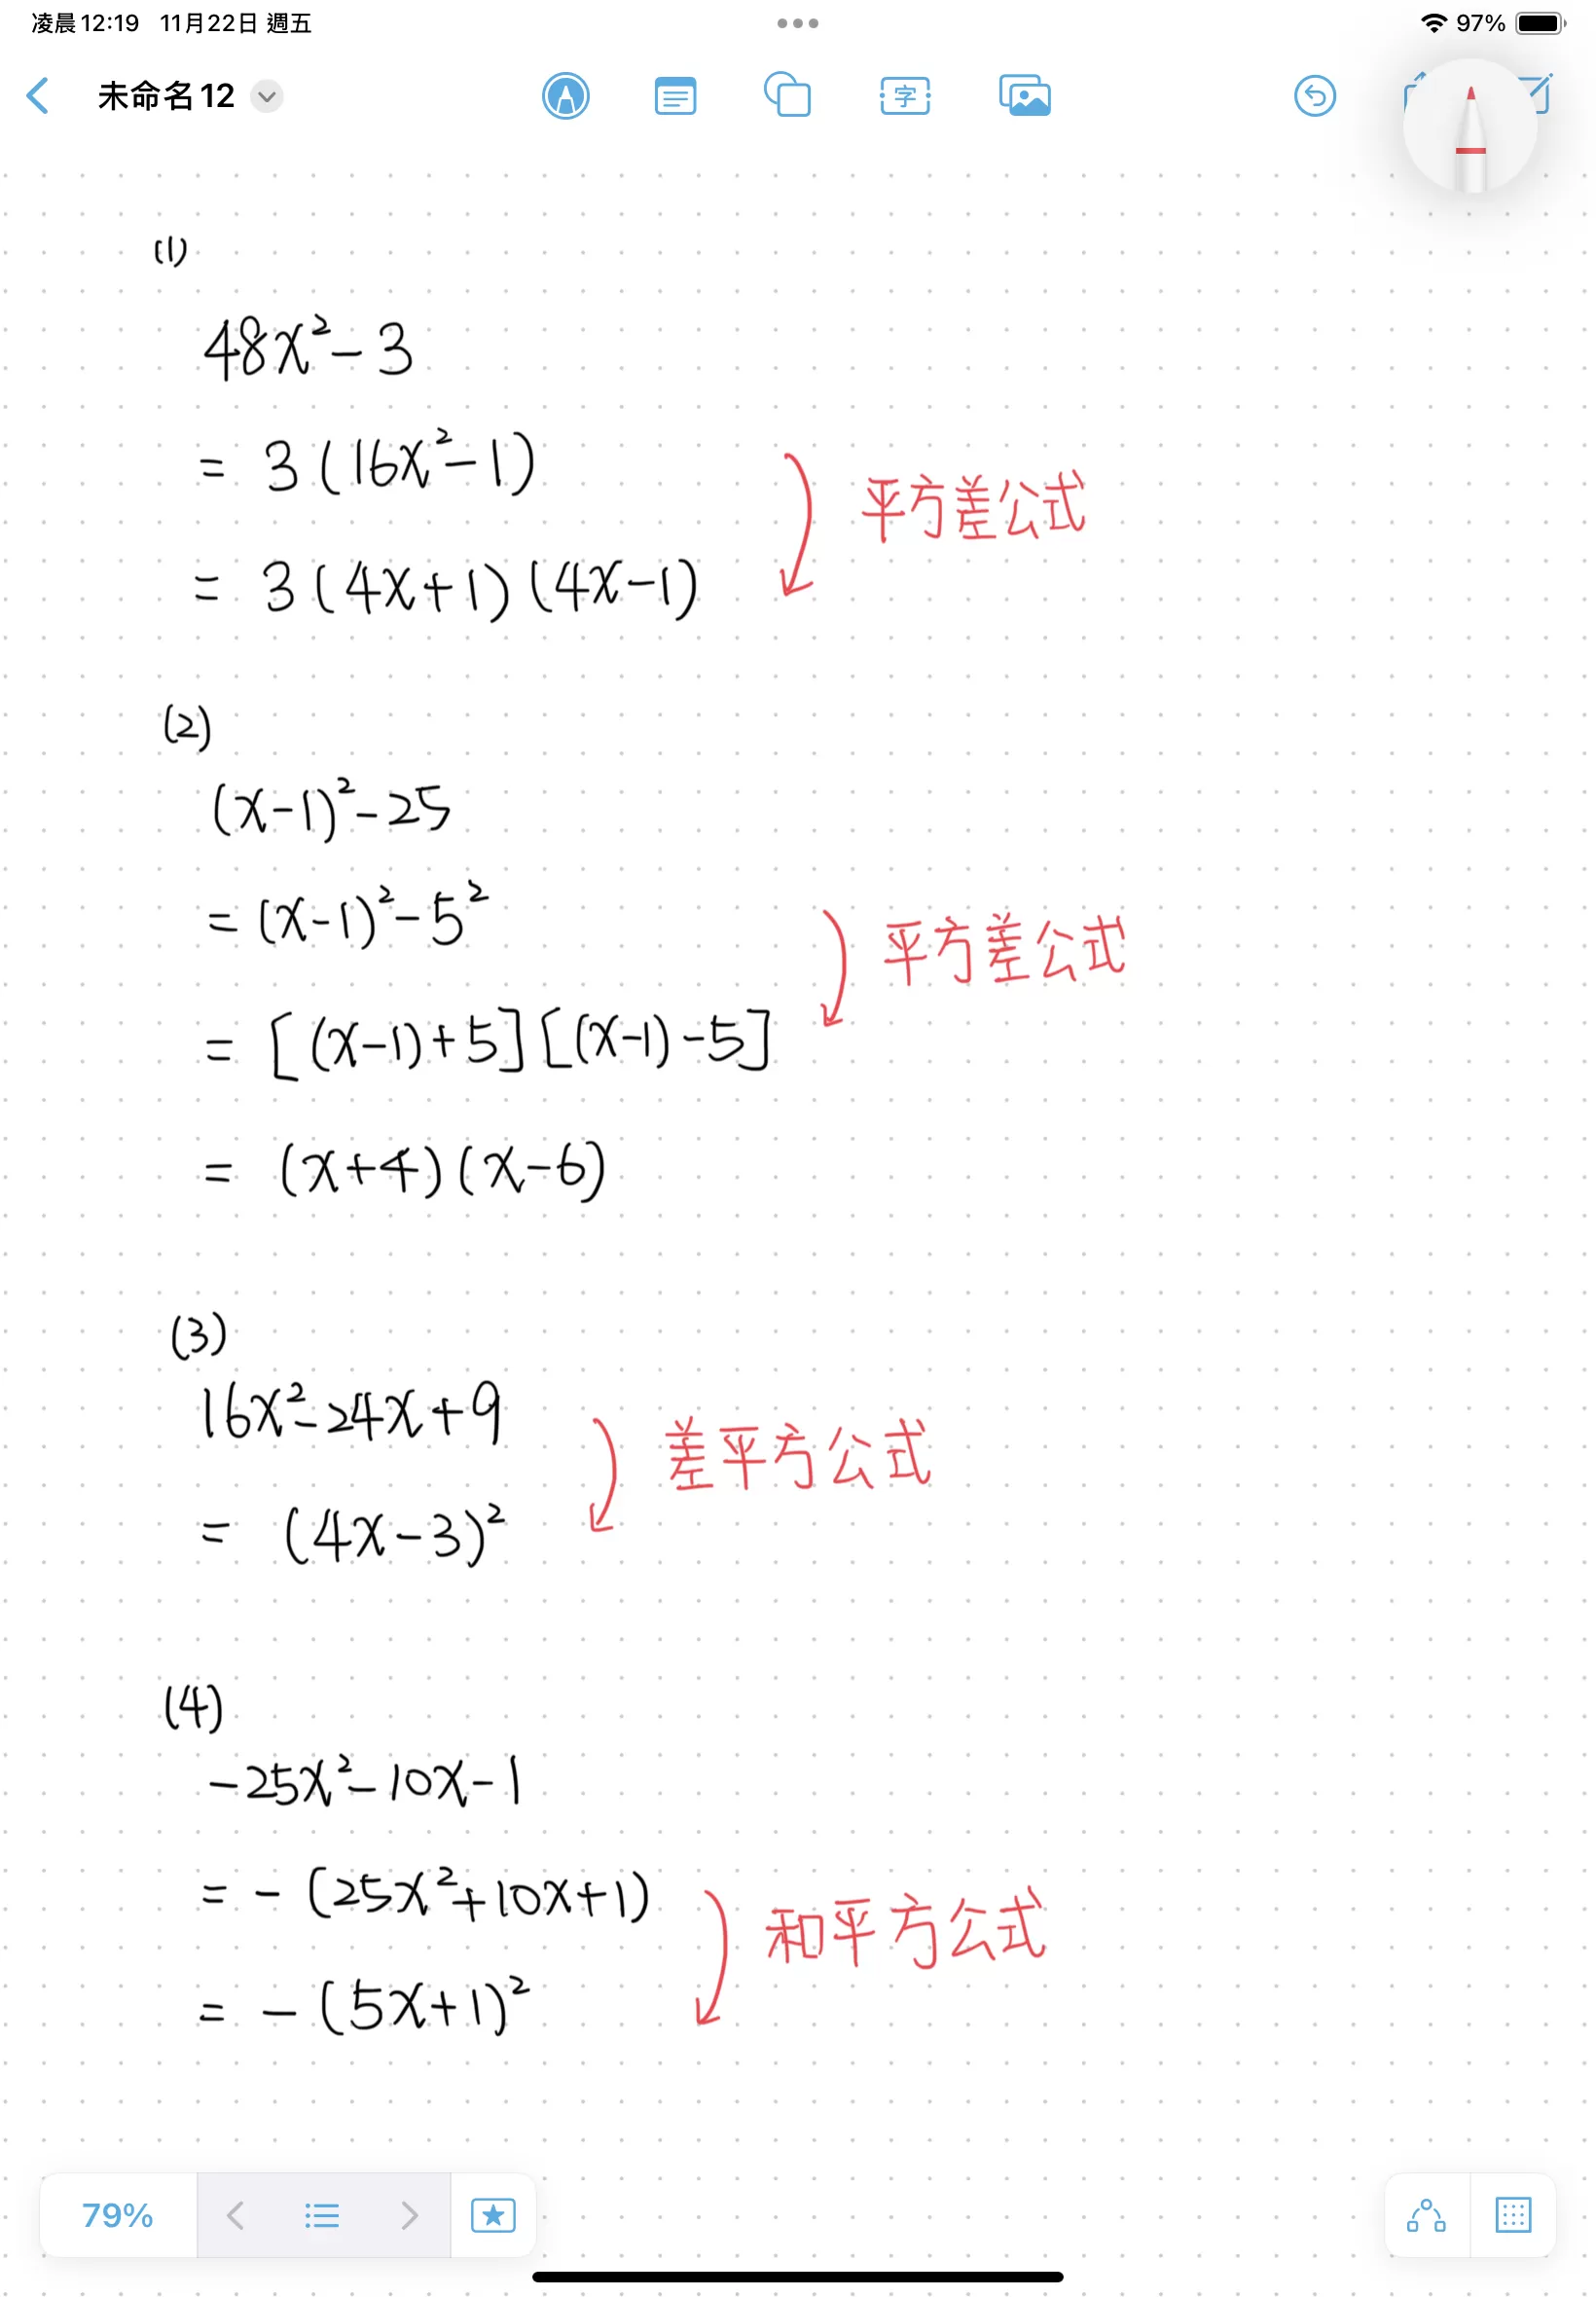 凌晨12:19 11月22日 週五
97%
未命名12
字
(1)
48x²-3
= 3(16x²-1)
平方差公式
= 3(4x+1)(4x-1)
(2)
(x-1)²-25
= (x-1)²-5²
平方差公式
= [(x-1)+5][(x-1)-5]
= (x+4)(x-6)
(3)
16x²-24x+9
差平方公式
= (4x-3)²
(4)
-25x²-10x-1
= -(25x²+10x+1)
和平方公式
= -(5x+1)²
79%